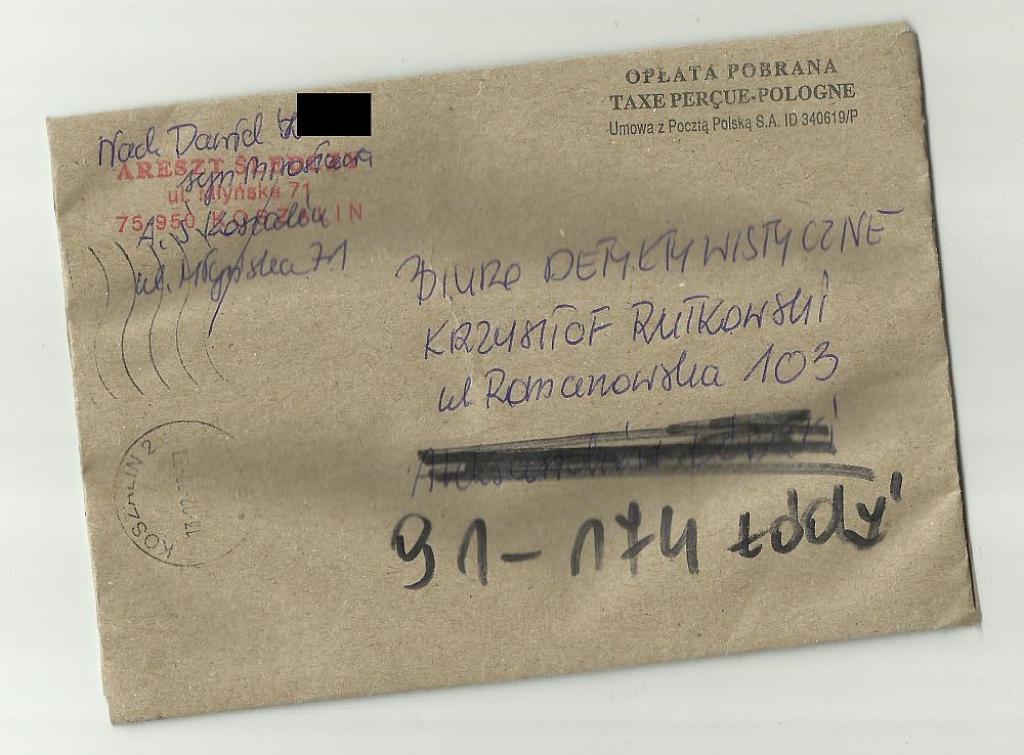 OPŁATA POBRANA
TAXE PERÇUE-POLOGNE
Umowa z Pocztą Polską S.A. ID 340619/P
Nad. Dawid
syn Mirosława
A. Ś Koszalin
ul. Młyńska 71
ARESZT ŚLEDCZY
ul. Młyńska 71
75-950 KOSZALIN
BIURO DETEKTYWISTYCZNE
KRZYSZTOF RUTKOWSKI
ul Romanowska 103
91-174 Łódź
KOSZALIN 2